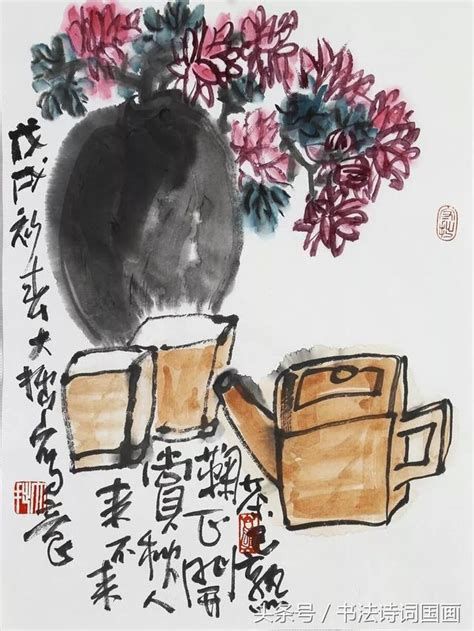 茶已熟
菊正開
賞秋人
来不来
戊戌初春大拙寫意
头条号 / 书法诗词国画